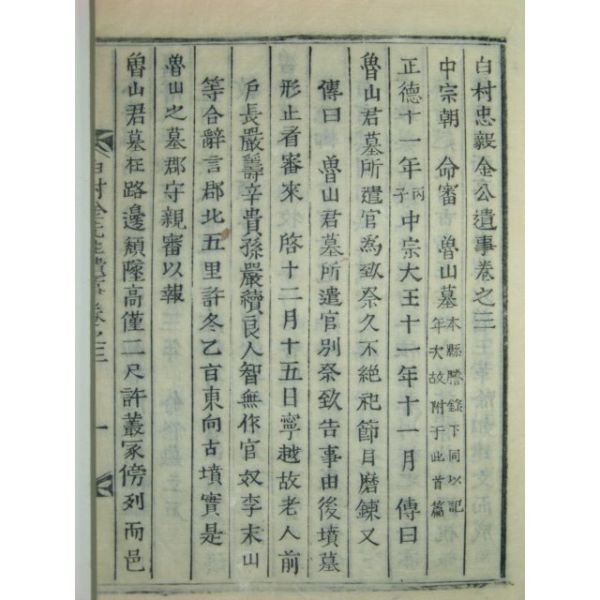 白村忠毅金公遺事卷之三
中宗朝　命審　魯山墓本縣謄錄下同以記年次故附于此首篇
正德十一年丙子中宗大王十一年十一月　傳曰
魯山君墓所遣官爲致祭久不絶祀節目磨鍊又
傳曰　魯山君墓所遣官別祭致告事由後墳墓
形止看審來　啓十二月十五日寧越故老人前
戶長嚴壽辛貴孫嚴續良人智無作官奴李末山
等合辭言郡北五里許冬乙旨東向古墳實是
魯山之墓郡守親審以報
魯山君墓在路邊頹墜高僅二尺許叢冢傍列而邑
白村金先生遺事 卷之三
一